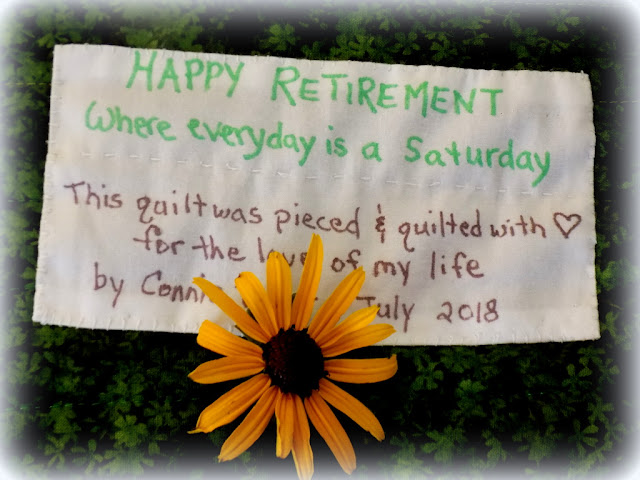 HAPPY RETIREMENT
Where everyday is a Saturday
This quilt was pieced & quilted with ♡
for the love of my life
by Connie July 2018